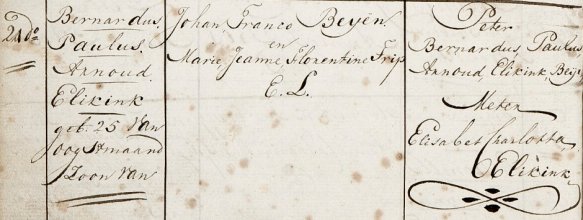 21 do
Bernardus,
Paulus,
Arnoud,
Elikink
geb: 25 van
oogstmaand
Zoon van
Johan Franco Beyën
en
Marie Jeanne Florentine Trip
E. L.
Peter
Bernardus, Paulus
Arnoud, Elikink Beij
Meter
Elisabet Charlotta,
Elikink